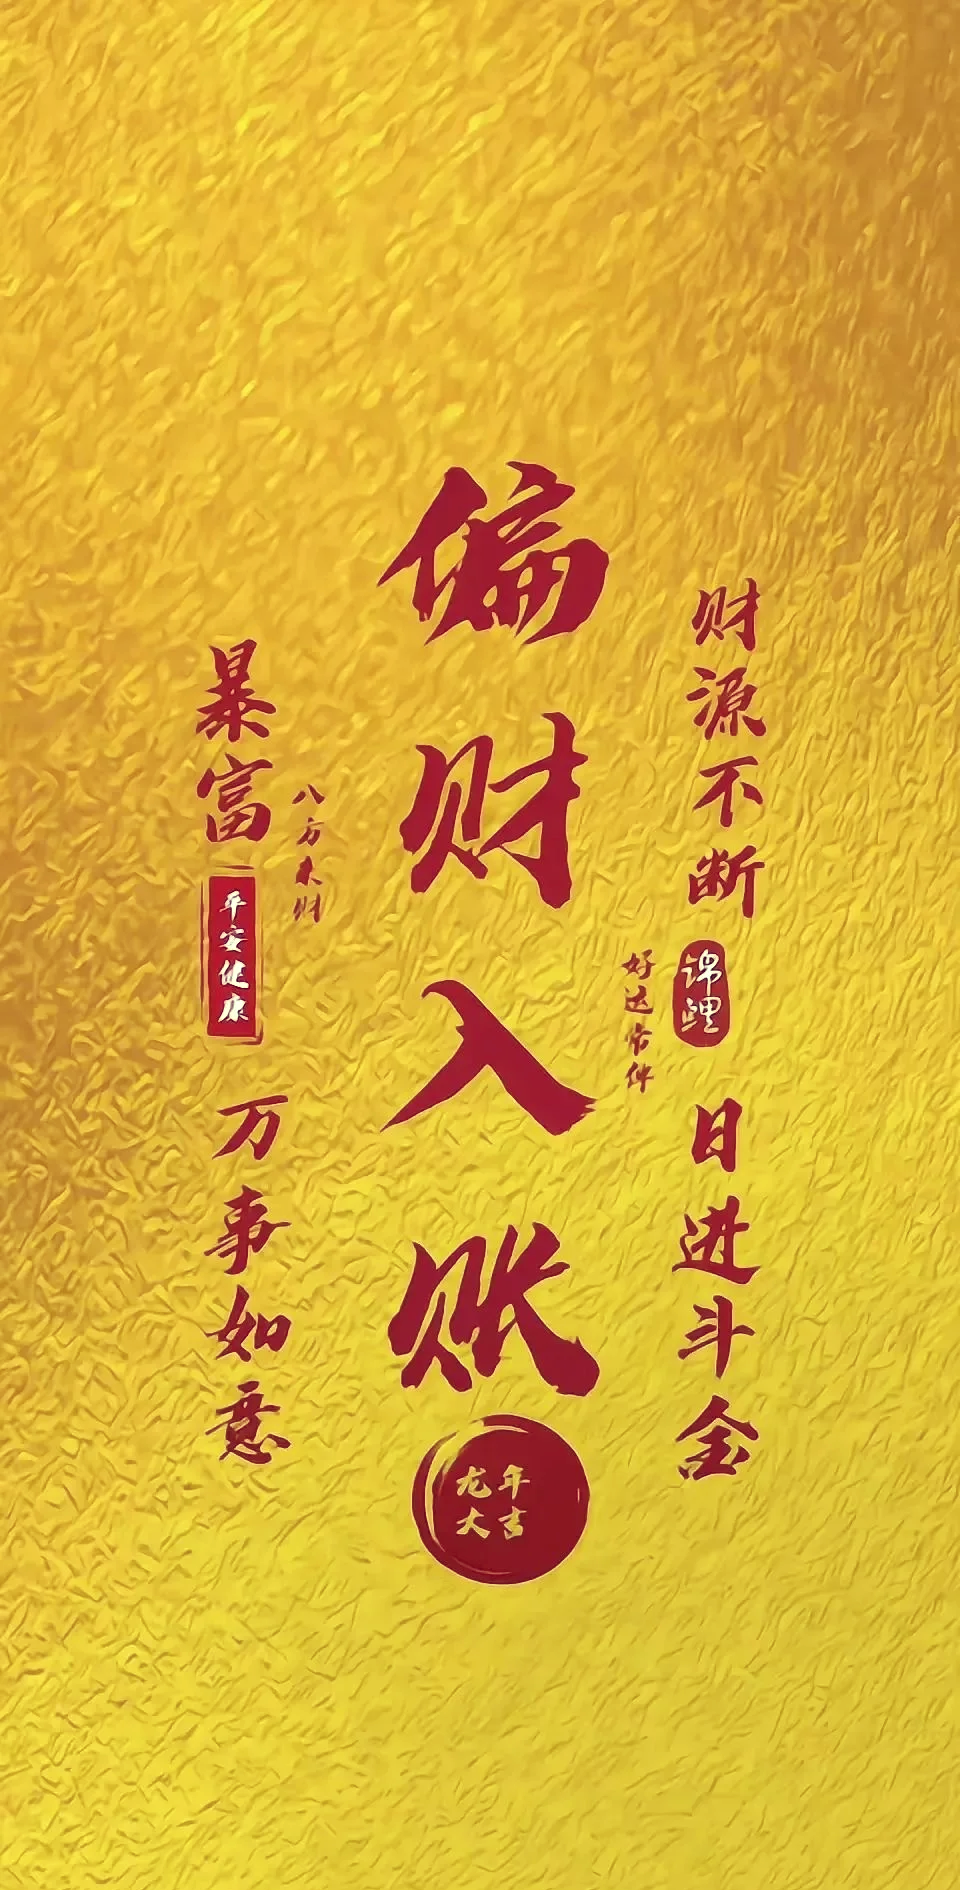 偏财入账
龙年
大吉
财源不断
锦鲤
日进斗金
好运常伴
暴富
八方来财
平安健康
万事如意